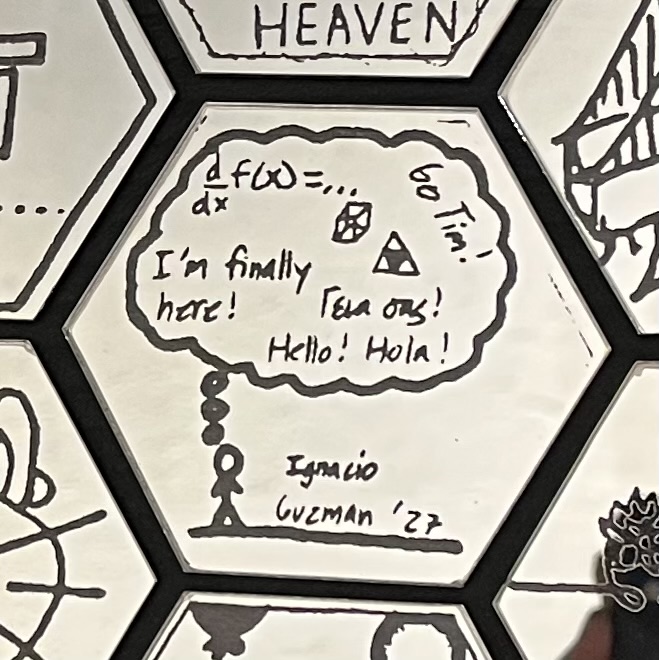 HEAVEN
d/dx f(x)=...
Go Tim!
I'm finally
here!
Γεια σας!
Hello! Hola!
Ignacio
Guzman '27